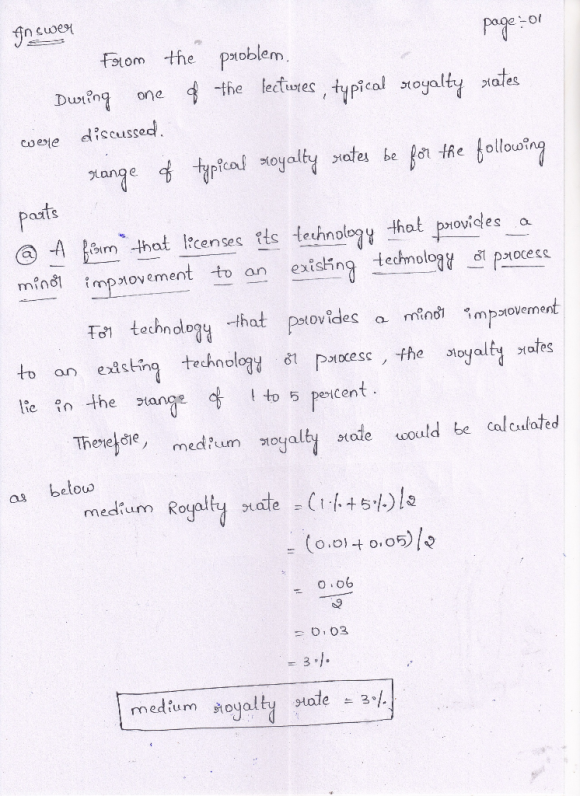 Answer
page:-01
From the problem.
During one of the lectures, typical royalty rates
were discussed.
range of typical royalty rates be for the following
parts
ⓐ A firm that licenses its technology that provides a
minor improvement to an existing technology or process
For technology that provides a minor improvement
to an existing technology or process, the royalty rates
lie in the range of 1 to 5 percent.
Therefore, medium royalty rate would be calculated
as below
medium Royalty rate = (1%+5%)/2
= (0.01+0.05)/2
= 0.06
2
= 0.03
= 3%
medium royalty rate = 3%